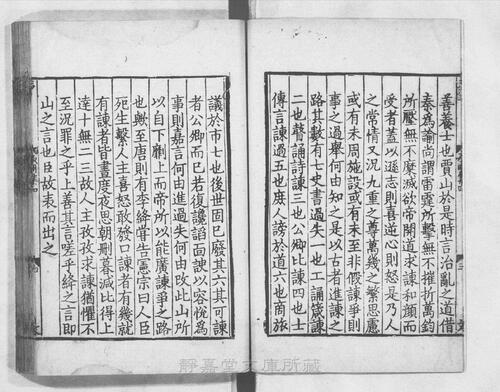 善養士也賈山於是時言治亂之道借
秦爲諭尚謂雷霆所擊無不摧折萬鈞
所壓無不糜滅欲帝開道求諫和顔而
受者蓋以遜志則喜逆心則怒是乃人
之常情又況九重之尊萬幾之繁思慮
或有未周施設或有未至非假諫爭則
事之過舉何由知之是以古者進諫之
路其數有七史書過失一也工誦箴諫
二也瞽誦詩諫三也公卿比諫四也士
傳言諫過五也庶人謗於道六也商旅
議於市七也後世固已廢其六其可諫
者公卿而已若復讒謟面諛以容悅爲
事則嘉言何由進過失何由改此山所
以自下劘上而帝所以能廣諫爭之路
也歟至唐則有李絳嘗告憲宗曰人臣
死生繫人主喜怒敢發口諫者有幾就
有諫者皆晝度夜思朝刪暮減比得上
達十無二三故人主孜孜求諫猶懼不
至況罪之乎上善其言嗟乎絳之言即
山之言也臣故表而出之
靜嘉堂文庫所藏